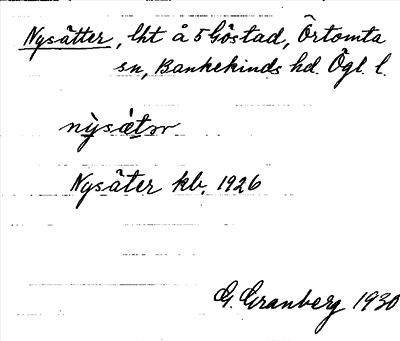 Nysätter, lht å 5 Göstad, Örtomta
sn, Bankekinds hd. Ögl. l.
nỳsǻtər
Nysäter kb. 1926
G. Granberg 1930